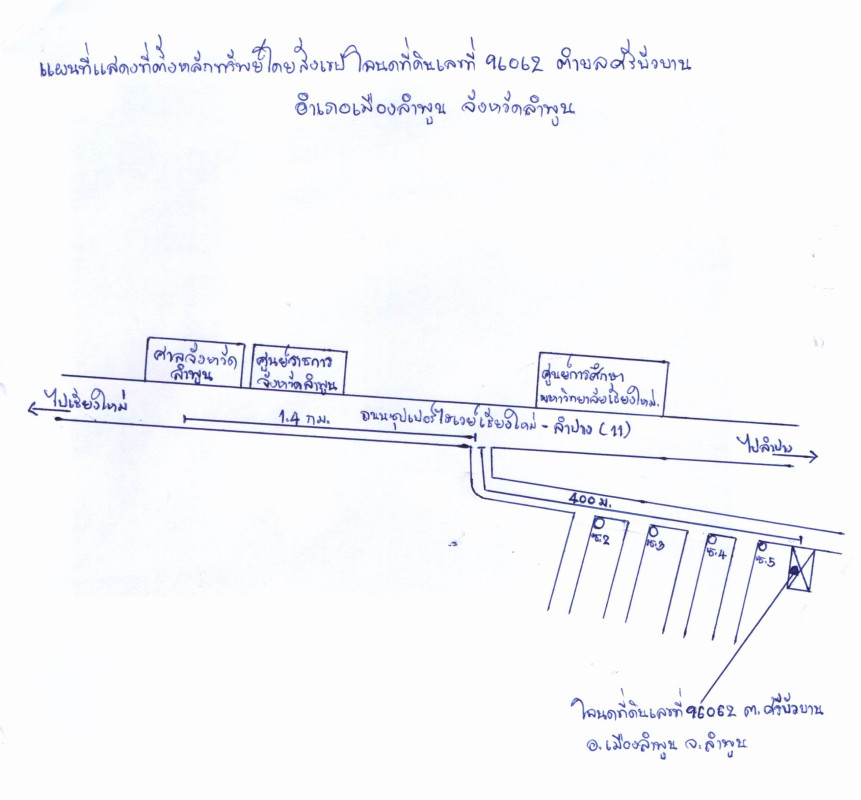 แผนที่แสดงที่ตั้งหลักทรัพย์โดยสังเขป โฉนดที่ดินเลขที่ 96062 ตำบลศรีบัวบาน
อำเภอเมืองลำพูน จังหวัดลำพูน
ศาลจังหวัด
ลำพูน
ศูนย์ราชการ
จังหวัดลำพูน
ศูนย์การศึกษา
มหาวิทยาลัยเชียงใหม่.
ไปเชียงใหม่
1.4 กม.
ถนนซุปเปอร์ไฮเวย์เชียงใหม่ - ลำปาง (11)
ไปลำปาง
400 ม.
ซ.2
ซ.3
ซ.4
ซ.5
โฉนดที่ดินเลขที่ 96062 ต.ศรีบัวบาน
อ.เมืองลำพูน จ.ลำพูน